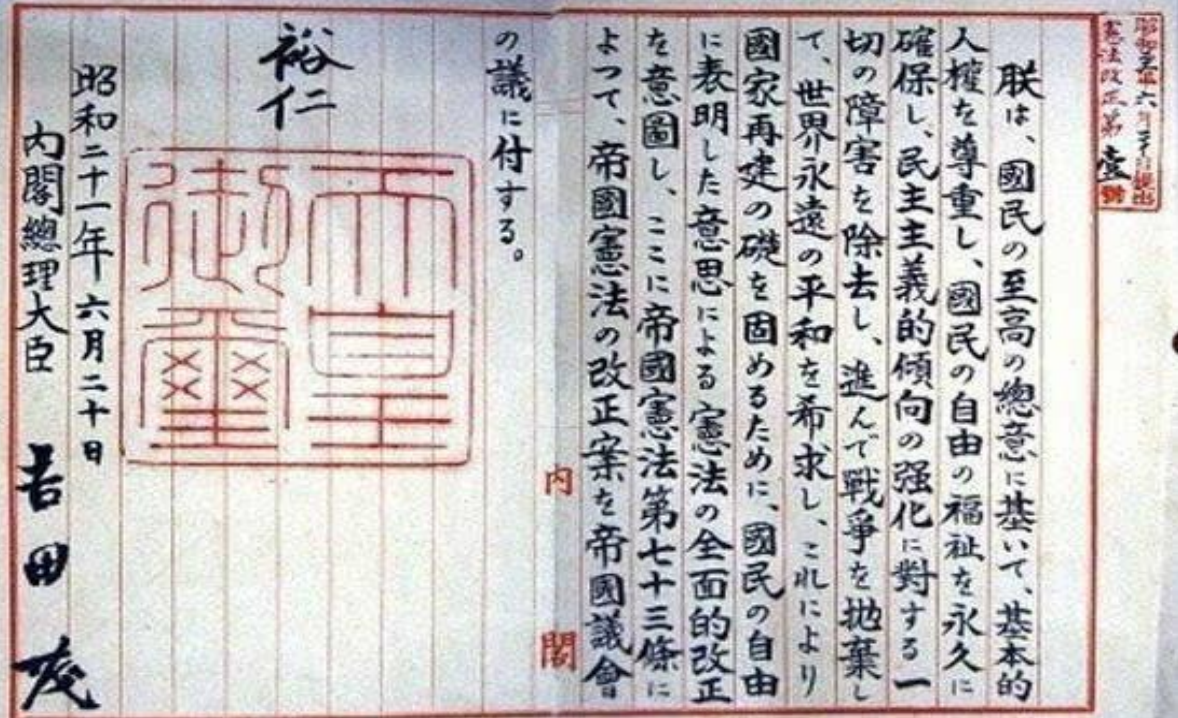 昭和二十一年六月二十日提出
憲法改正第壹號
朕は、國民の至高の總意に基いて、基本的
人權を尊重し、國民の自由の福祉を永久に
確保し、民主主義的傾向の强化に對する一
切の障害を除去し、進んで戰爭を抛棄し
て、世界永遠の平和を希求し、これにより
國家再建の礎を固めるために、國民の自由
に表明した意思による憲法の全面的改正
を意圖し、ここに帝國憲法第七十三條に
よつて、帝國憲法の改正案を帝國議會
の議に付する。
內閣
裕仁
天皇
御璽
昭和二十一年六月二十日
內閣總理大臣 吉田茂